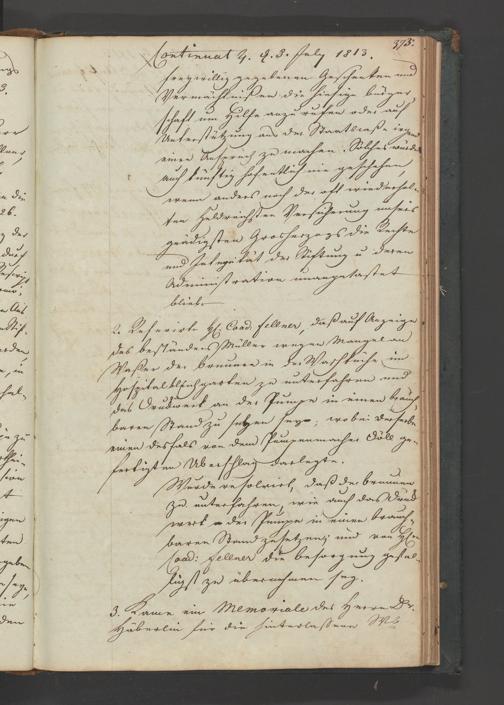 375.
Continuat. d. d. 3. July 1813.
freywillig gegebenen Geschenken und
Vermächtnißen die hiesige bürger-
schaft um Hülfe anzurufen oder auf
Unterstützung aus der Staatskasse irgend
einen Anspruch zu machen. Solches würde
auch künftig hoffentlich nie geschehen,
wenn anders nach der oft wiederhol-
ten huldreichsten Versicherung unsers
gnädigsten Grosherzogs die Rechte
und Integrität der Stiftung u. deren
Administration unangetastet
bliebe.
2. Referirte H. Coad. Fellner, daß auf Anzeige
des beständers Müller wegen Mangel an
Waßer der brunnen in der Waschküche im
Hospital zu unterfahren und
das Druckwerk an der Pumpe in einen brauch-
baren Stand zu setzen sey; wobey derselbe
einen desfalls von dem Pumpenmacher Döll ge-
fertigten Überschlag darlegte.
Wurde resolvirt, daß der brunnen
zu unterfahren, wie auch das Druck-
werk an der Pumpe in einen brauch-
baren Stand zu setzen; und von H.
Coad: Fellner die besorgung gefäl-
ligst zu übernehmen sey.
3. Kame ein Memoriale des Herrn Dr.
Häberlin für die hinterlassene